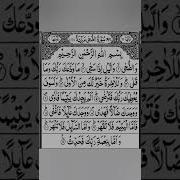 بِسْمِ اللهِ الرَّحْمٰنِ الرَّحِيْمِ
وَالضُّحٰى وَالَّيْلِ اِذَا سَجٰى مَا وَدَّعَكَ رَبُّكَ وَمَا
قَلٰى وَلَلْاٰخِرَةُ خَيْرٌ لَّكَ مِنَ الْاُوْلٰى وَلَسَوْفَ
يُعْطِيْكَ رَبُّكَ فَتَرْضٰى اَلَمْ يَجِدْكَ يَتِيْمًا فَاٰوٰى
وَوَجَدَكَ ضَآلًّا فَهَدٰى وَوَجَدَكَ عَآئِلًا فَاَغْنٰى
فَاَمَّا الْيَتِيْمَ فَلَا تَقْهَرْ وَاَمَّا السَّآئِلَ فَلَا تَنْهَرْ
وَاَمَّا بِنِعْمَةِ رَبِّكَ فَحَدِّثْ